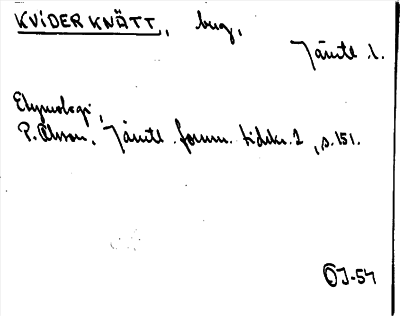 KVIDERKNÄTT, bug,
Jämtl. l.
Etymologi,
P. Olsson, Jämtl. fornm. tidskr. 2, s. 151.
OJ-54